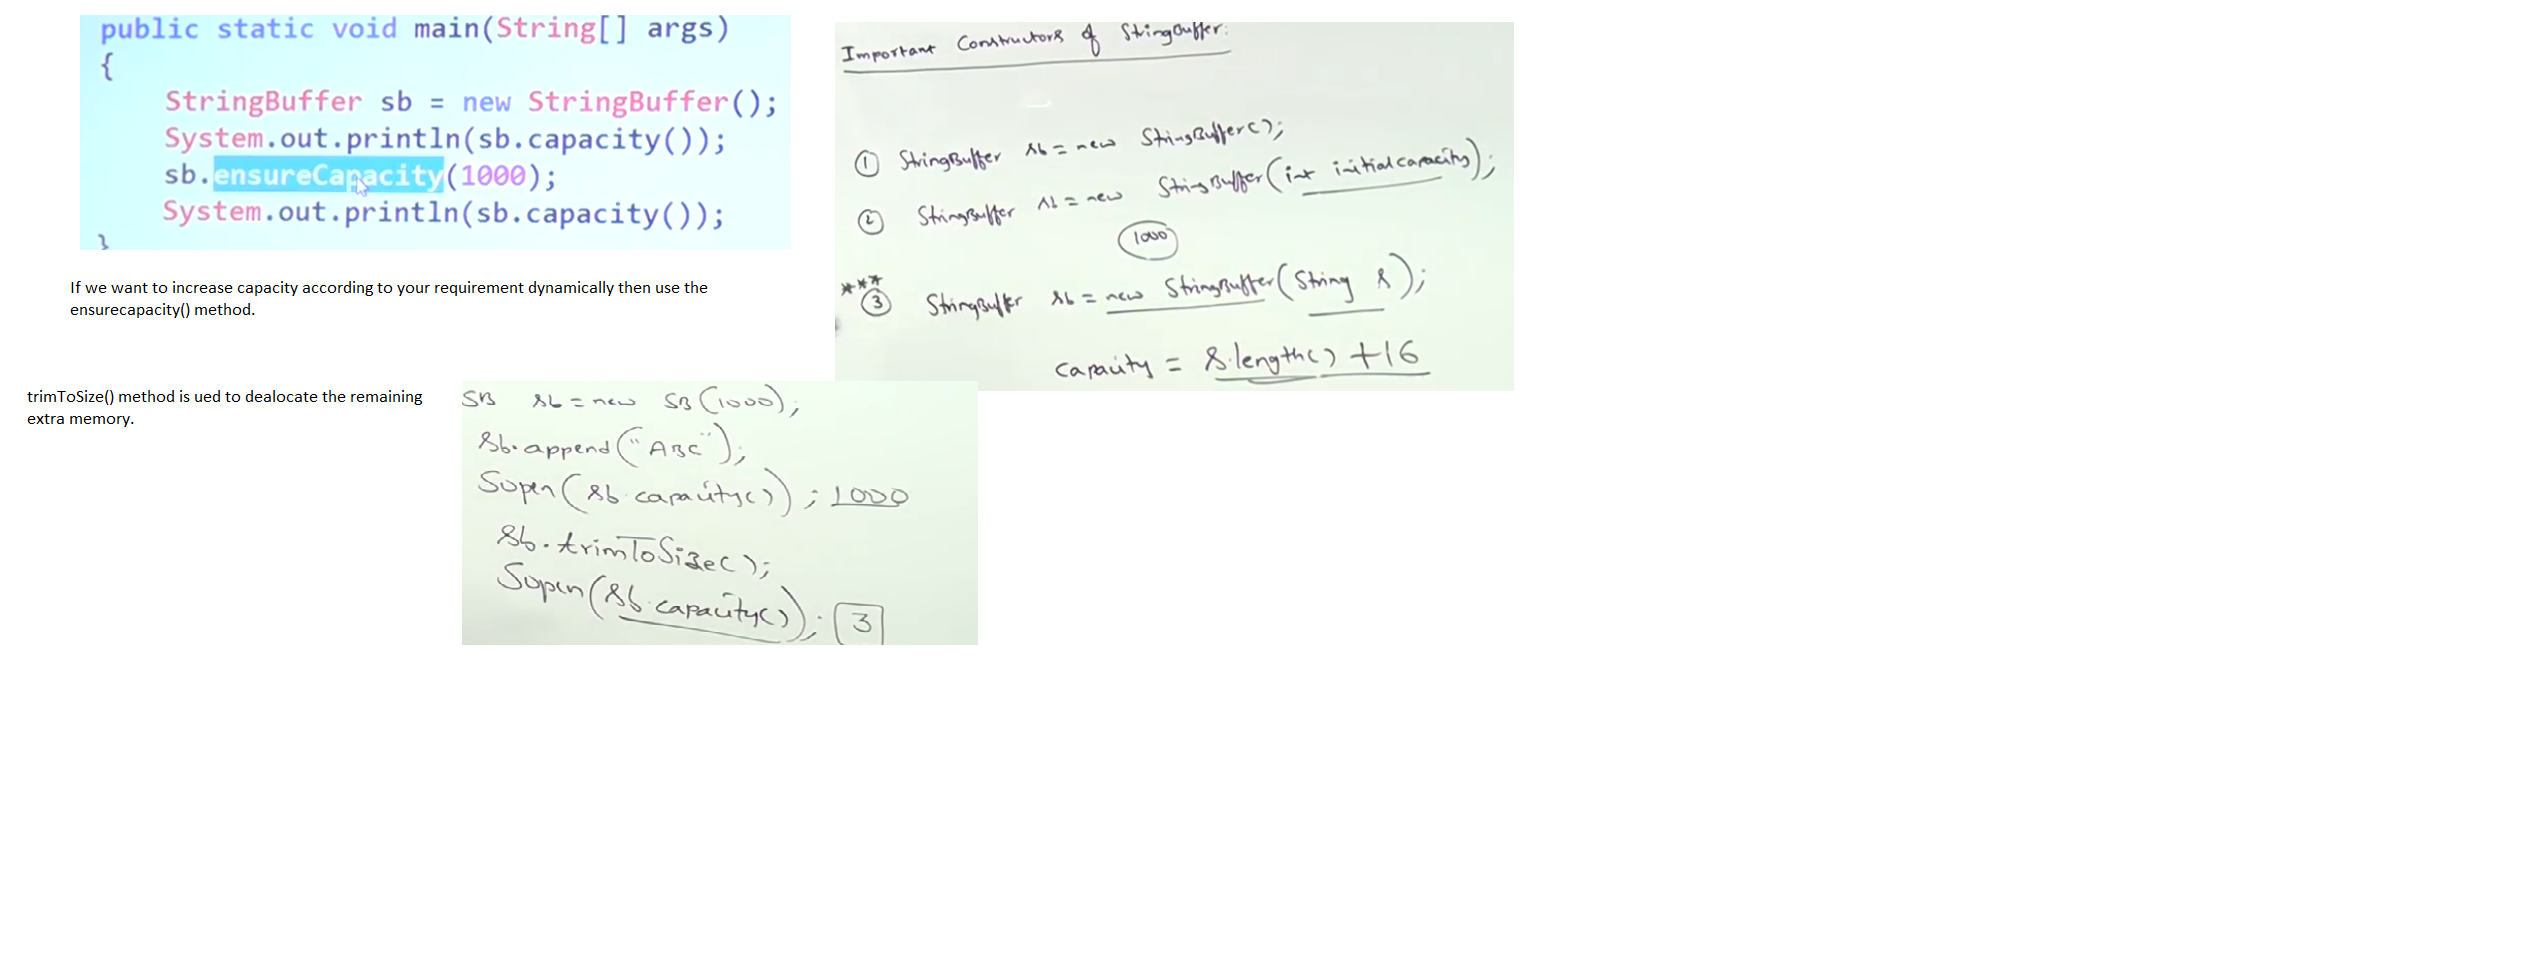 public static void main(String[] args)
{
StringBuffer sb = new StringBuffer();
System.out.println(sb.capacity());
sb.ensureCapacity(1000);
System.out.println(sb.capacity());
}
If we want to increase capacity according to your requirement dynamically then use the
ensurecapacity() method.
Important Constructors of StringBuffer:
① StringBuffer sb = new StringBuffer();
② StringBuffer sb = new StringBuffer(int initialcapacity);
1000
***
③ StringBuffer sb = new StringBuffer(String s);
capacity = s.length() +16
trimToSize() method is ued to dealocate the remaining
extra memory.
SB sb = new SB(1000);
sb.append("ABC");
Sopln(sb.capacity()); 1000
sb.trimToSize();
Sopln(sb.capacity()); 3